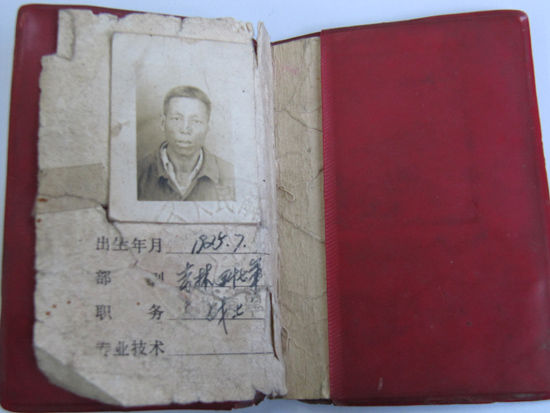 出生年月 1925.7.
部 别 吉林四七军
职 务 战士
专业技术